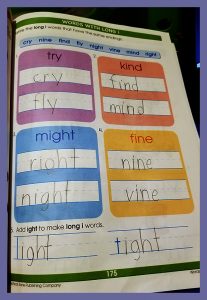 WORDS WITH LONG I
the long i words that have the same ending.
cry nine find fly night vine mind right
try
cry
fly
2. kind
find
mind
might
right
night
4. fine
nine
vine
5. Add ight to make long i words.
light
tight
175
Publishing Company